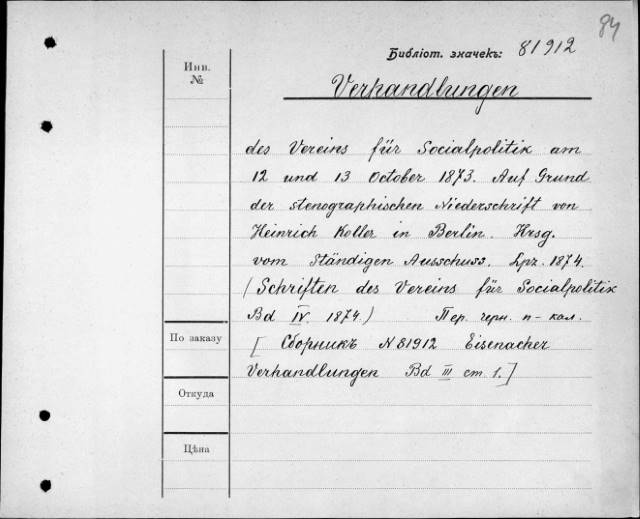 84
Библіот. значекъ: 81912
Инв. №
Verhandlungen
des Vereins für Socialpolitik am
12 und 13 October 1873. Auf Grund
der stenographischen Niederschrift von
Heinrich Roller in Berlin. Hrsg.
vom Ständigen Ausschuss. Lpz. 1874.
(Schriften des Vereins für Socialpolitik
Bd IV. 1874.) Пер. черн. п-кал.
По заказу
[Сборникъ N 81912 Eisenacher
Verhandlungen Bd III ст. 1.]
Откуда
Цѣна